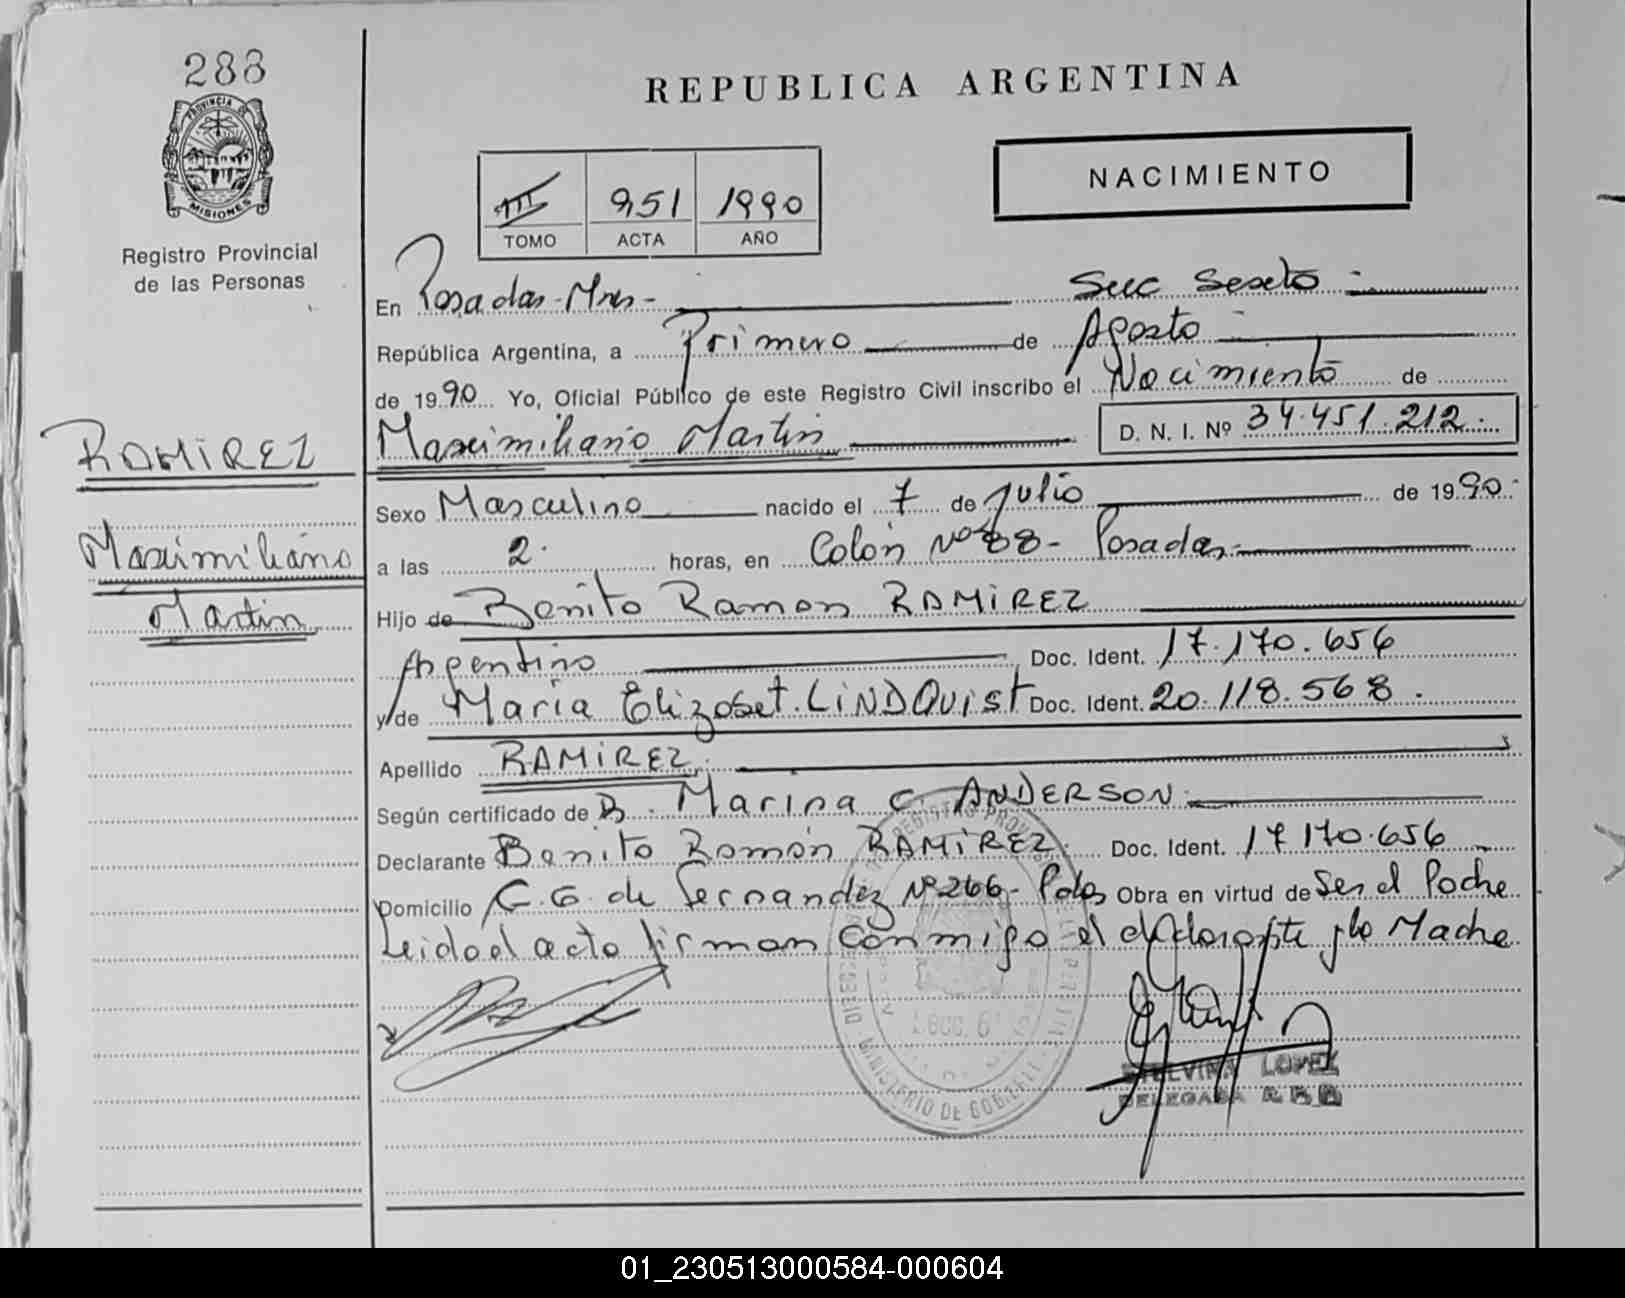 288
REPUBLICA ARGENTINA
NACIMIENTO
III 951 1990
TOMO ACTA AÑO
PROVINCIA DE MISIONES
Registro Provincial
de las Personas
En Posadas-Mnes- Suc Sexto
República Argentina, a Primero de Agosto
de 1990 Yo, Oficial Público de este Registro Civil inscribo el Nacimiento de
Maximiliano Martin D. N. I. Nº 34.451.212
RAMIREZ
Maximiliano
Martin
Sexo Masculino nacido el 7 de Julio de 1990
a las 2 horas, en Colón Nº 88- Posadas
Hijo de Benito Ramon RAMIREZ
Argentino Doc. Ident. 17.170.656
y de Maria Elizabet LINDQUIST Doc. Ident. 20.118.568
Apellido RAMIREZ
Según certificado de D. Marina C. ANDERSON
Declarante Benito Ramón RAMIREZ Doc. Ident. 17 170.656
Domicilio C. G. de Fernandez Nº 266- Pdas Obra en virtud de Ser el Padre
Leido el acto firman conmigo el declarante y la Madre
LOPEZ
DELEGADA R.P.P
MINISTERIO DE GOB.
01_230513000584-000604